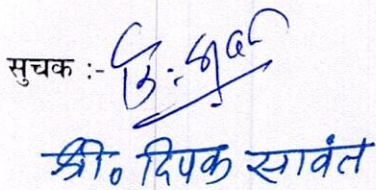 सुचक :-
श्री० दिपक सावंत